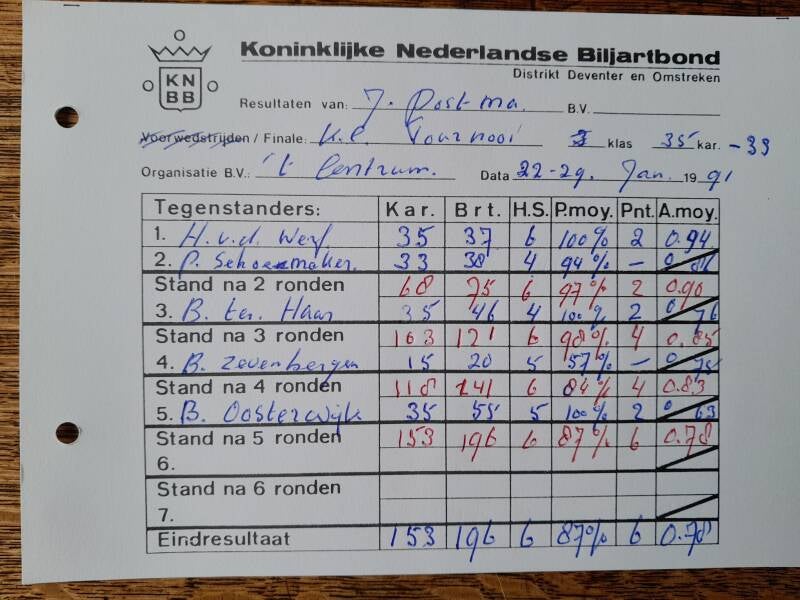 KN
BB
Koninklijke Nederlandse Biljartbond
Distrikt Deventer en Omstreken
Resultaten van: J. Postma. B.V.
Voorwedstrijden / Finale: K.C. Tournooi 3 klas 35 kar. -33
Organisatie B.V.: 't Centrum. Data 22-29. Jan. 19 91
Tegenstanders: Kar. Brt. H.S. P.moy. Pnt. A.moy.
1. H.v.d. Werf 35 37 6 100% 2 0.94
2. P. Schoenmaker. 33 38 4 94% - 0 86
Stand na 2 ronden 68 75 6 97% 2 0.90
3. B. ter. Haar 35 46 4 100% 2 0 76
Stand na 3 ronden 103 121 6 98% 4 0.85
4. B. Zevenbergen 15 20 5 57% - 0 75
Stand na 4 ronden 118 141 6 84% 4 0.83
5. B. Oosterwijk 35 55 5 100% 2 0 63
Stand na 5 ronden 153 196 6 87% 6 0.78
6.
Stand na 6 ronden
7.
Eindresultaat 153 196 6 87% 6 0.78